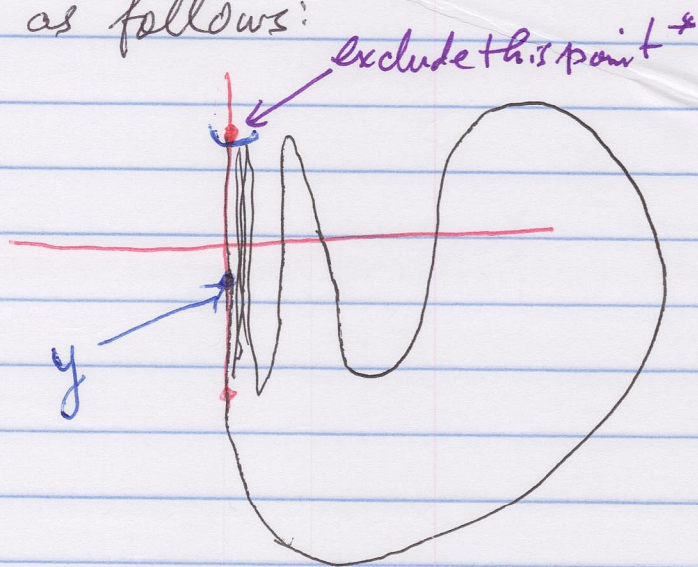 as follows:
exclude this point*
y